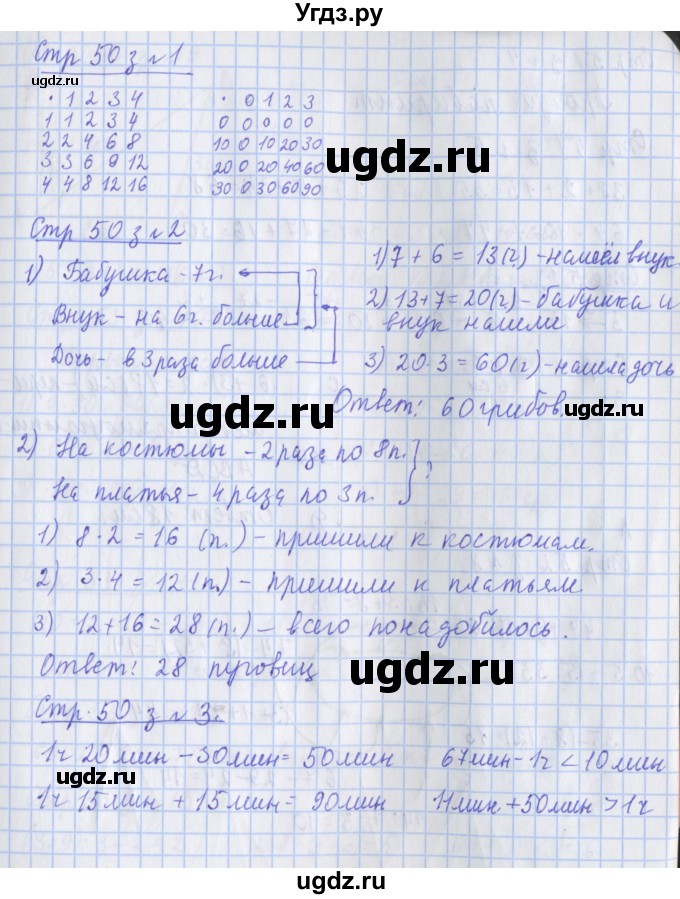 Угдз.ру
Стр 50 з №1
ugdz.ru
· 1 2 3 4
1 1 2 3 4
2 2 4 6 8
3 3 6 9 12
4 4 8 12 16
· 0 1 2 3
0 0 0 0 0
10 0 10 20 30
20 0 20 40 60
30 0 30 60 90
ugdz.ru
ugdz.ru
Стр 50 з №2
1) Бабушка - 7г.
Внук - на 6г. больше
Дочь - в 3 раза больше
ugdz.ru
1) 7 + 6 = 13(г.) - нашёл внук
2) 13+7=20(г) - бабушка и
внук нашли
3) 20·3=60(г) - нашла дочь
Ответ: 60 грибов.
ugdz.ru
ugdz.ru
2) На костюмы - 2 раза по 8п. ?
На платья - 4 раза по 3п.
1) 8·2=16 (п.) - пришили к костюмам.
2) 3·4=12(п.) - пришили к платьям
ugdz.ru
3) 12+16=28(п.) - всего понадобилось.
Ответ: 28 пуговиц
ugdz.ru
Стр. 50 з №3.
1ч 20мин - 30мин = 50мин 67мин - 1ч < 10мин
ugdz.ru
1ч 15мин + 15мин = 90мин 11мин + 50мин > 1ч
ugdz.ru
ugdz.ru